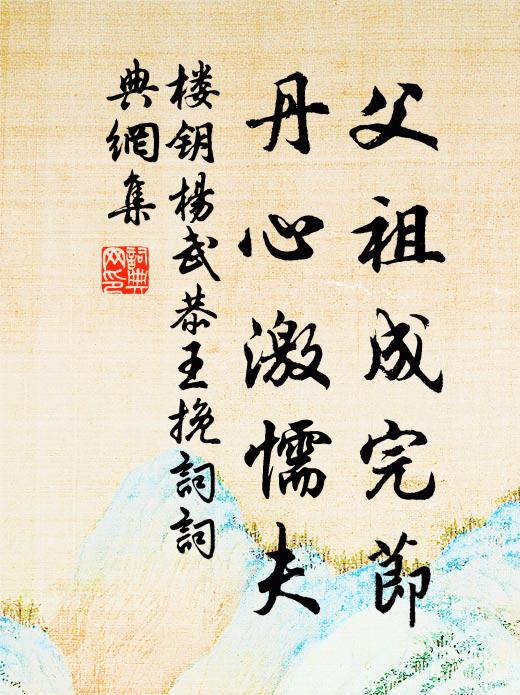 父祖成完節
丹心激懦夫
楼钥杨武恭王挽詞詞
典網集
詞典
网印